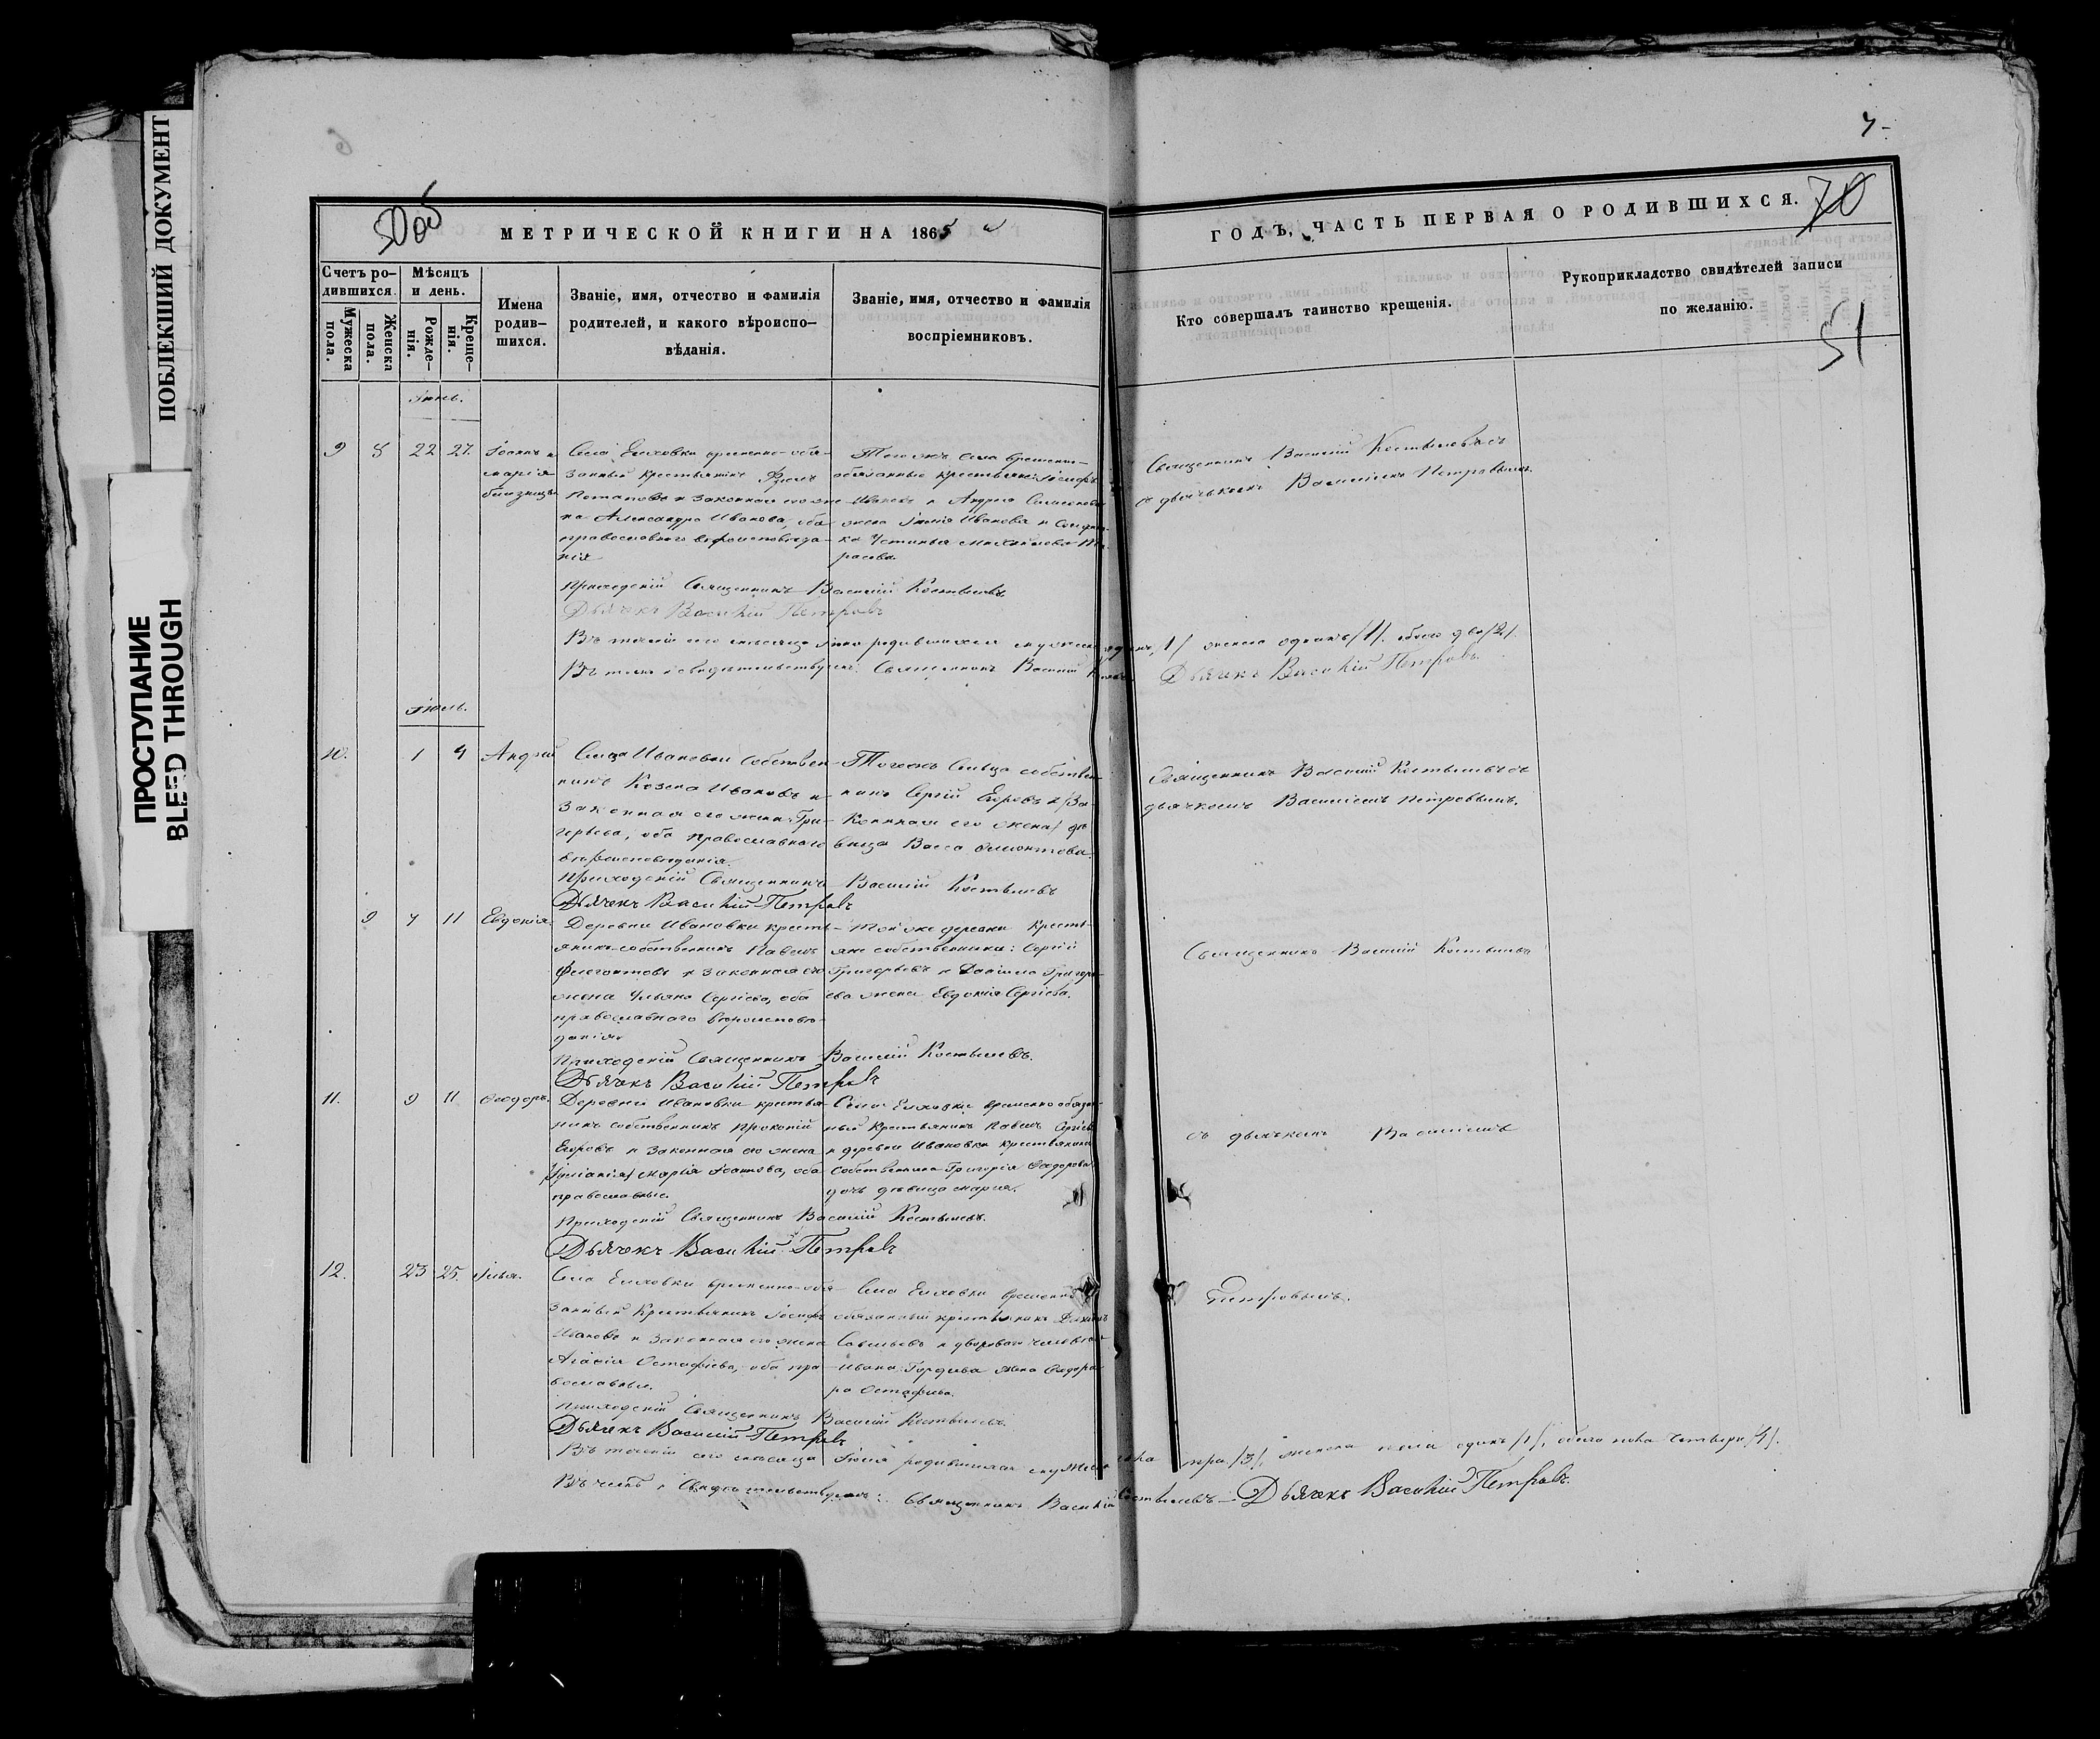 ПОБЛЕКШИЙ ДОКУМЕНТ
ПРОСТУПАНИЕ
BLEED THROUGH
50 об
МЕТРИЧЕСКОЙ КНИГИ НА 1865 й
Счетъ ро-
дившихся.
Мужеска
пола.
Женска
пола.
Мѣсяцъ
и день.
Рожде-
нія.
Креще-
нія.
Имена
родив-
шихся.
Званіе, имя, отчество и фамилія
родителей, и какого вѣроиспо-
вѣданія.
Званіе, имя, отчество и фамилія
воспріемниковъ.
7-
70
51
ГОДЪ, ЧАСТЬ ПЕРВАЯ О РОДИВШИХСЯ.
Кто совершалъ таинство крещенія.
Рукоприкладство свидѣтелей записи
по желанію.
Іюнь.
9 8 22 27
Іоаннъ и
Марія
близнецы
Села Еловки временно-обя-
занный крестьянинъ
Потаповъ и законная его же-
на Александра Иванова, оба
православнаго вѣроисповѣда-
нія
Того жъ села временно-
обязанные крестьяне: Іосифъ
Ивановъ и Андрея
жена Ивановъ и
ка Устинья Михайлова
Священникъ Василій Костылевъ съ
дьячкомъ Василіемъ Петровымъ.
Приходскій Священникъ Василій Костылевъ
Дьячекъ Василій Петровъ
Въ теченіи сего мѣсяца Іюня родившихся мужеска одинъ /1/ женска одинъ /1/. обоего два /2/.
Въ томъ и свидѣтельствуемъ: Священникъ Василій Дьячекъ Василій Петровъ.
Іюль.
10. 1 4 Андрей
Сельца Ивановки собствен-
никъ Козма Ивановъ и
законная его жена
оба православнаго
вѣроисповѣданія.
Тогожъ Сельца собствен-
никъ Сергій Егоровъ и /За-
конная его жена/ дѣ-
вица Васса
Священникъ Василій Костылевъ съ
дьячкомъ Василіемъ Петровымъ.
Приходскій Священникъ Василій Костылевъ
Дьячекъ Василій Петровъ
9 7 11 Евдокія.
Деревни Ивановки кресть-
янинъ-собственникъ Павелъ
Флегонтовъ и законная его
жена Ульяна Сергіева, оба
православнаго вѣроисповѣ-
данія.
Той же деревни кресть-
яне собственники: Сергій
Григорьевъ и Даніила Григорь-
ева жена Евдокія Сергіева.
Священникъ Василій Костылевъ
Приходскій Священникъ Василій Костылевъ.
Дьячекъ Василій Петровъ
11. 9 11 Ѳеодоръ.
Деревни Ивановки крестья-
нинъ собственникъ Прокопій
Егоровъ и законная его жена
Марія Іоаннова, оба
православные.
Села Еловки временно обязан-
ный крестьянинъ Павелъ Сергіевъ
и деревни Ивановки крестьянина
собственника Григорія Ѳеодорова
дочь дѣвица Марія.
съ дьячкомъ Василіемъ
Приходскій Священникъ Василій Костылевъ.
Дьячекъ Василій Петровъ
12. 23 25. Илья.
Села Еловки временно-обя-
занный Крестьянинъ Іосифъ
Ивановъ и законная его жена
Агафія Остафіева, оба пра-
вославные.
Села Еловки временно
обязанный крестьянинъ
Савельевъ и дворового человѣка
Ивана Гордѣева жена Ѳеодо-
ра Остафіева.
Петровымъ.
Приходскій Священникъ Василій Костылевъ.
Дьячекъ Василій Петровъ
Въ теченіи сего мѣсяца Іюля родившихся мужеска пола три /3/, женска пола одинъ /1/, обоего пола четыре /4/.
Въ чемъ и Свидѣтельствуемъ: Священникъ Василій Костылевъ - Дьячекъ Василій Петровъ.